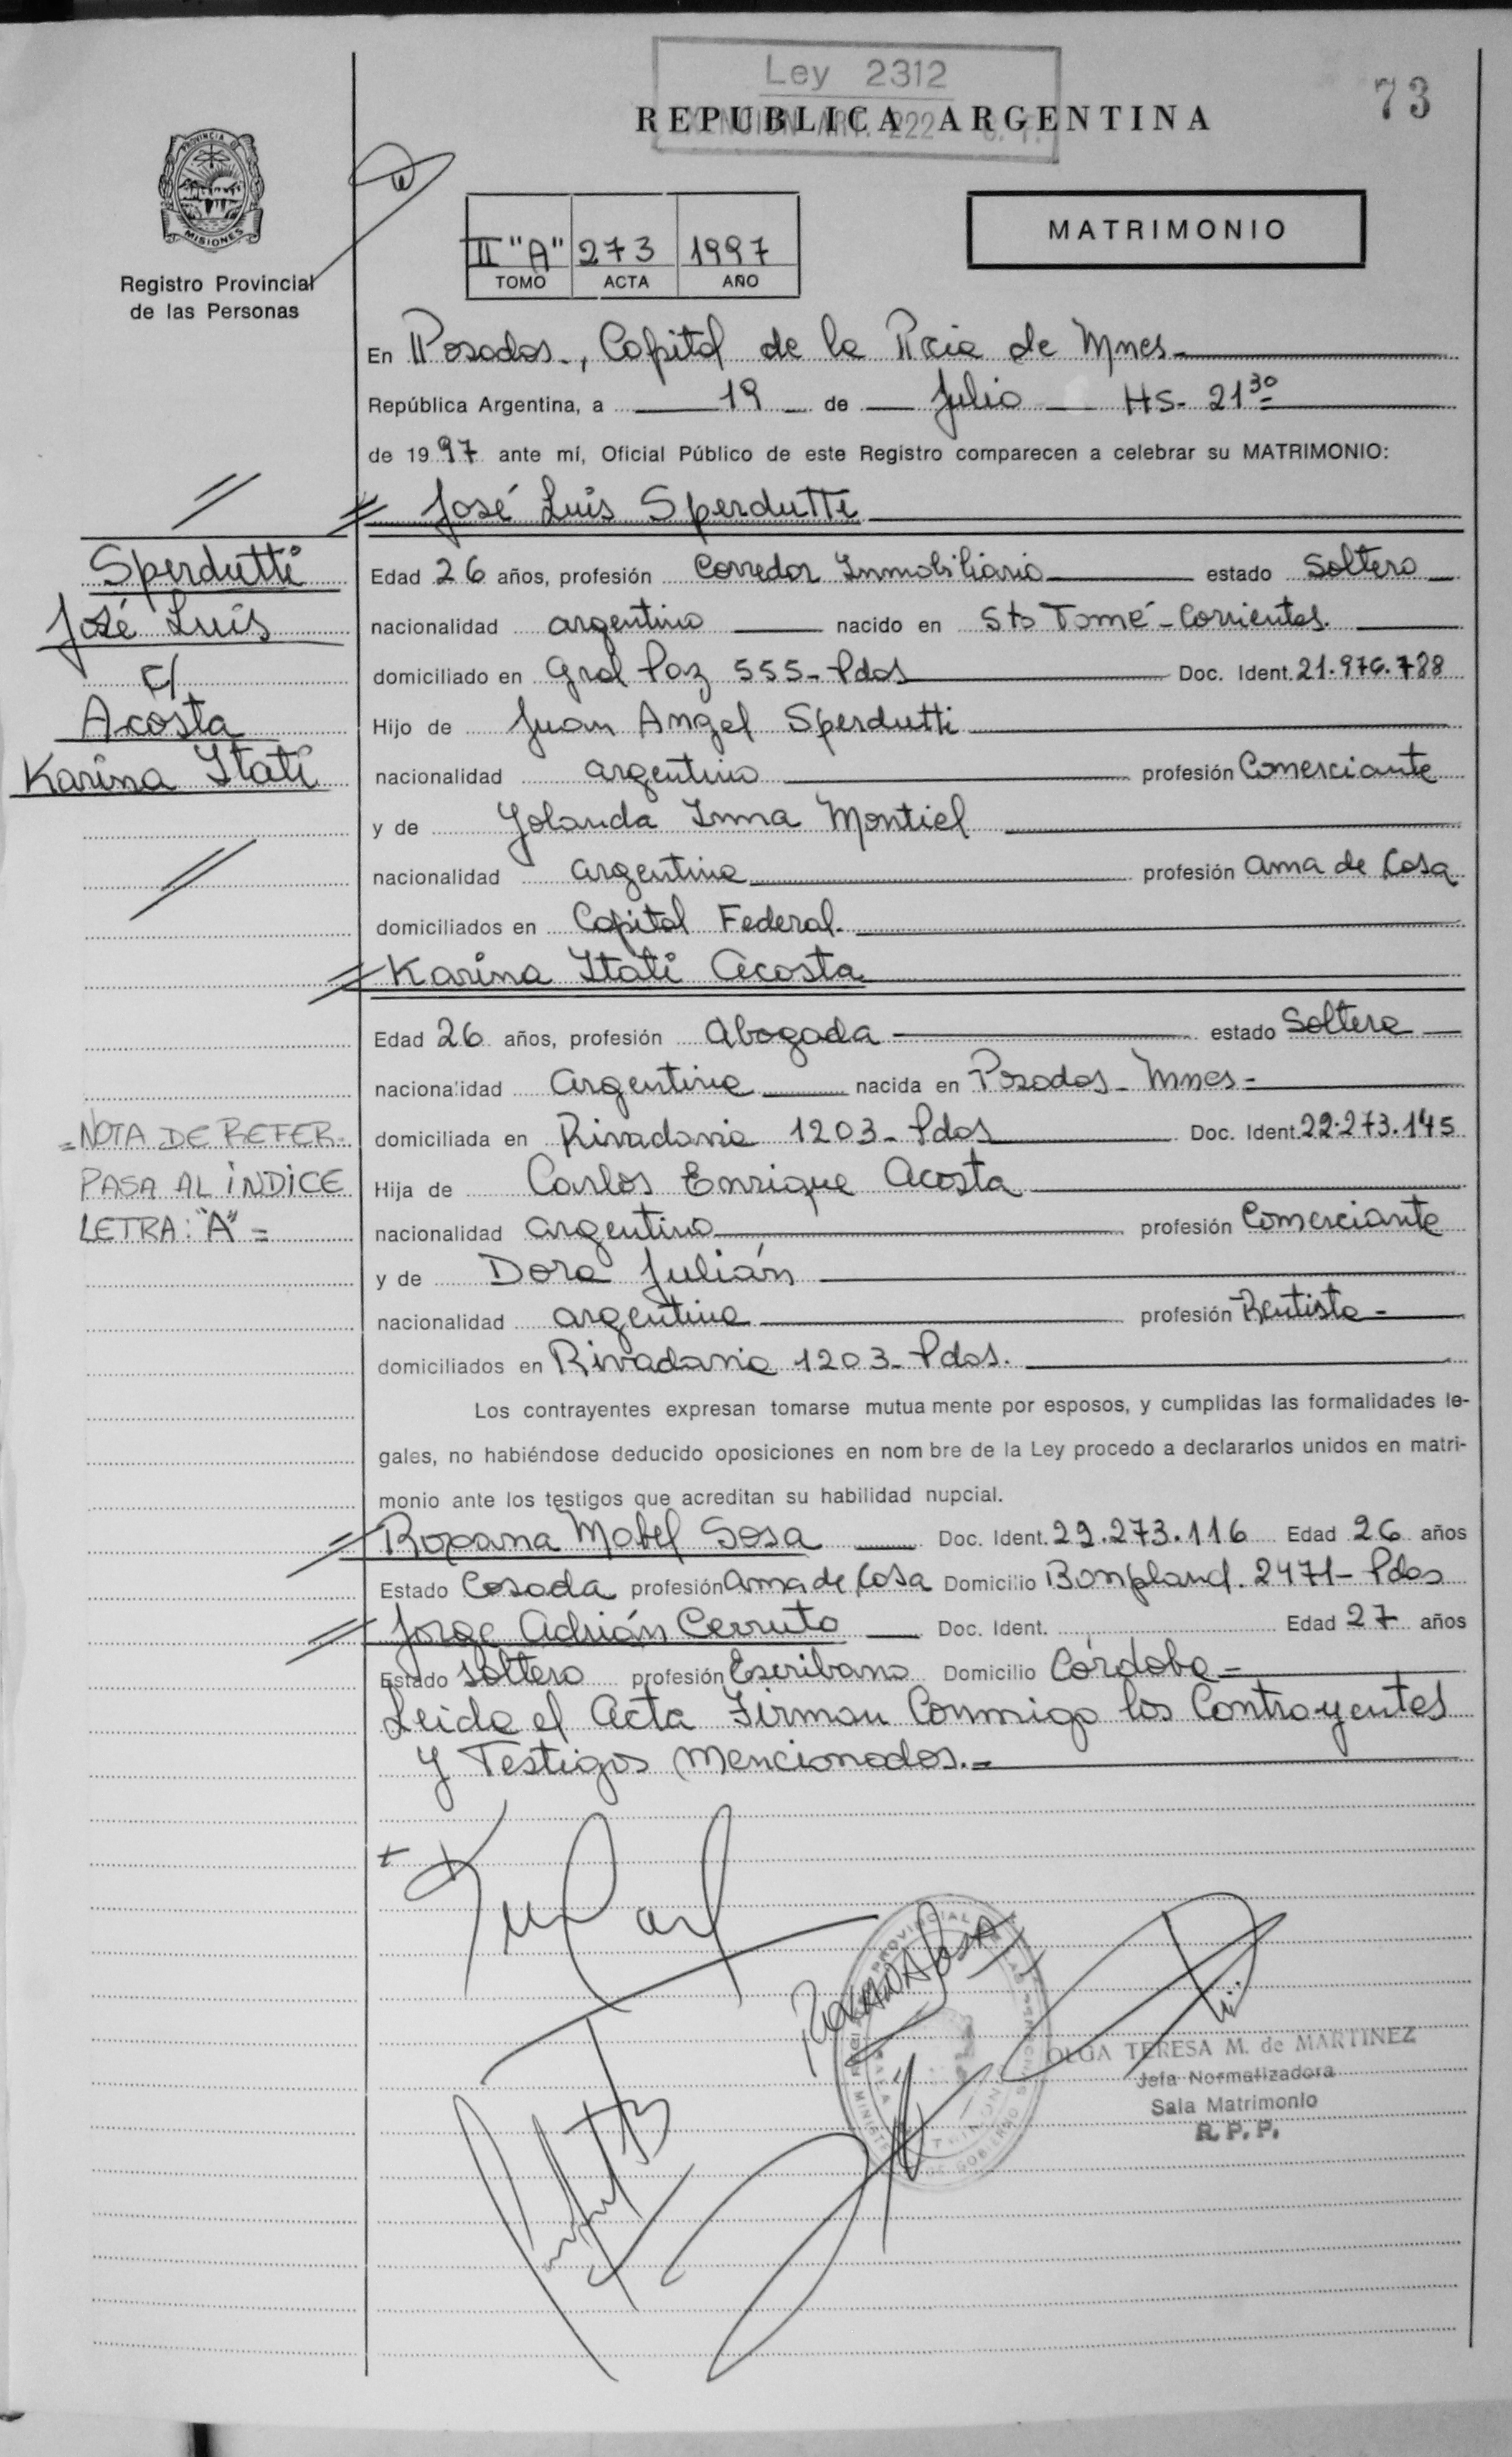 Ley 2312
73
REPUBLICA ARGENTINA
PROVINCIA D
MISIONES
Registro Provincial
de las Personas
II "A" 273 1997
TOMO ACTA AÑO
MATRIMONIO
En Posadas, Capital de la Pcia de Mnes
República Argentina, a 19 de Julio Hs. 21 30
de 1997 ante mí, Oficial Público de este Registro comparecen a celebrar su MATRIMONIO:
José Luis Sperdutti
Sperdutti
José Luis
c/
Acosta
Karina Itatí
Edad 26 años, profesión Corredor Inmobiliario estado Soltero
nacionalidad argentino nacido en Sto Tomé - Corrientes.
domiciliado en Gral Paz 555 - Pdas Doc. Ident. 21.976.788
Hijo de Juan Angel Sperdutti
nacionalidad argentino profesión Comerciante
y de Yolanda Inma Montiel
nacionalidad argentina profesión Ama de Casa
domiciliados en Capital Federal.
Karina Itatí Acosta
Edad 26 años, profesión Abogada estado Soltera
nacionalidad Argentina nacida en Posadas - Mnes =
domiciliada en Rivadavia 1203 - Pdas Doc. Ident. 22.273.145
Hija de Carlos Enrique Acosta
nacionalidad argentino profesión Comerciante
y de Dora Julián
nacionalidad argentina profesión Rentista -
domiciliados en Rivadavia 1203 - Pdas.
= NOTA DE REFER.
PASA AL ÍNDICE
LETRA: "A" =
Los contrayentes expresan tomarse mutua mente por esposos, y cumplidas las formalidades le-
gales, no habiéndose deducido oposiciones en nom bre de la Ley procedo a declararlos unidos en matri-
monio ante los testigos que acreditan su habilidad nupcial.
Roxana Mabel Sosa Doc. Ident. 22.273.116 Edad 26 años
Estado Casada profesión Ama de Casa Domicilio Bonpland. 2471 - Pdas
Jorge Adrián Cerruto Doc. Ident. Edad 27 años
Estado soltero profesión Escribano Domicilio Córdoba =
Leida el Acta Firman Conmigo los Contrayentes
y Testigos Mencionados. =
ROXANA SOSA
OLGA TERESA M. de MARTINEZ
Jefa Normatizadora
Sala Matrimonio
R. P. P.